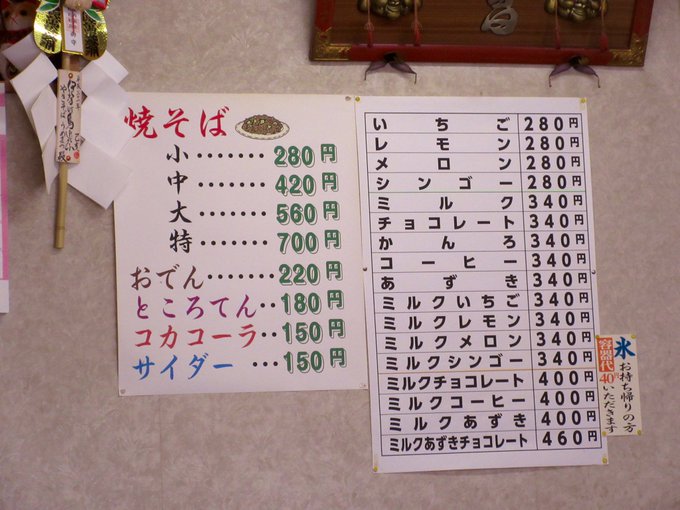 焼そば
小‥‥‥‥280円
中‥‥‥‥420円
大‥‥‥‥560円
特‥‥‥‥700円
おでん‥‥‥‥220円
ところてん‥180円
コカコーラ‥150円
サイダー‥‥150円
いちご 280円
レモン 280円
メロン 280円
シンゴー 280円
ミルク 340円
チョコレート 340円
かんろ 340円
コーヒー 340円
あずき 340円
ミルクいちご 340円
ミルクレモン 340円
ミルクメロン 340円
ミルクシンゴー 340円
ミルクチョコレート 400円
ミルクコーヒー 400円
ミルクあずき 400円
ミルクあずきチョコレート 460円
氷お持ち帰りの方
容器代40円いただきます